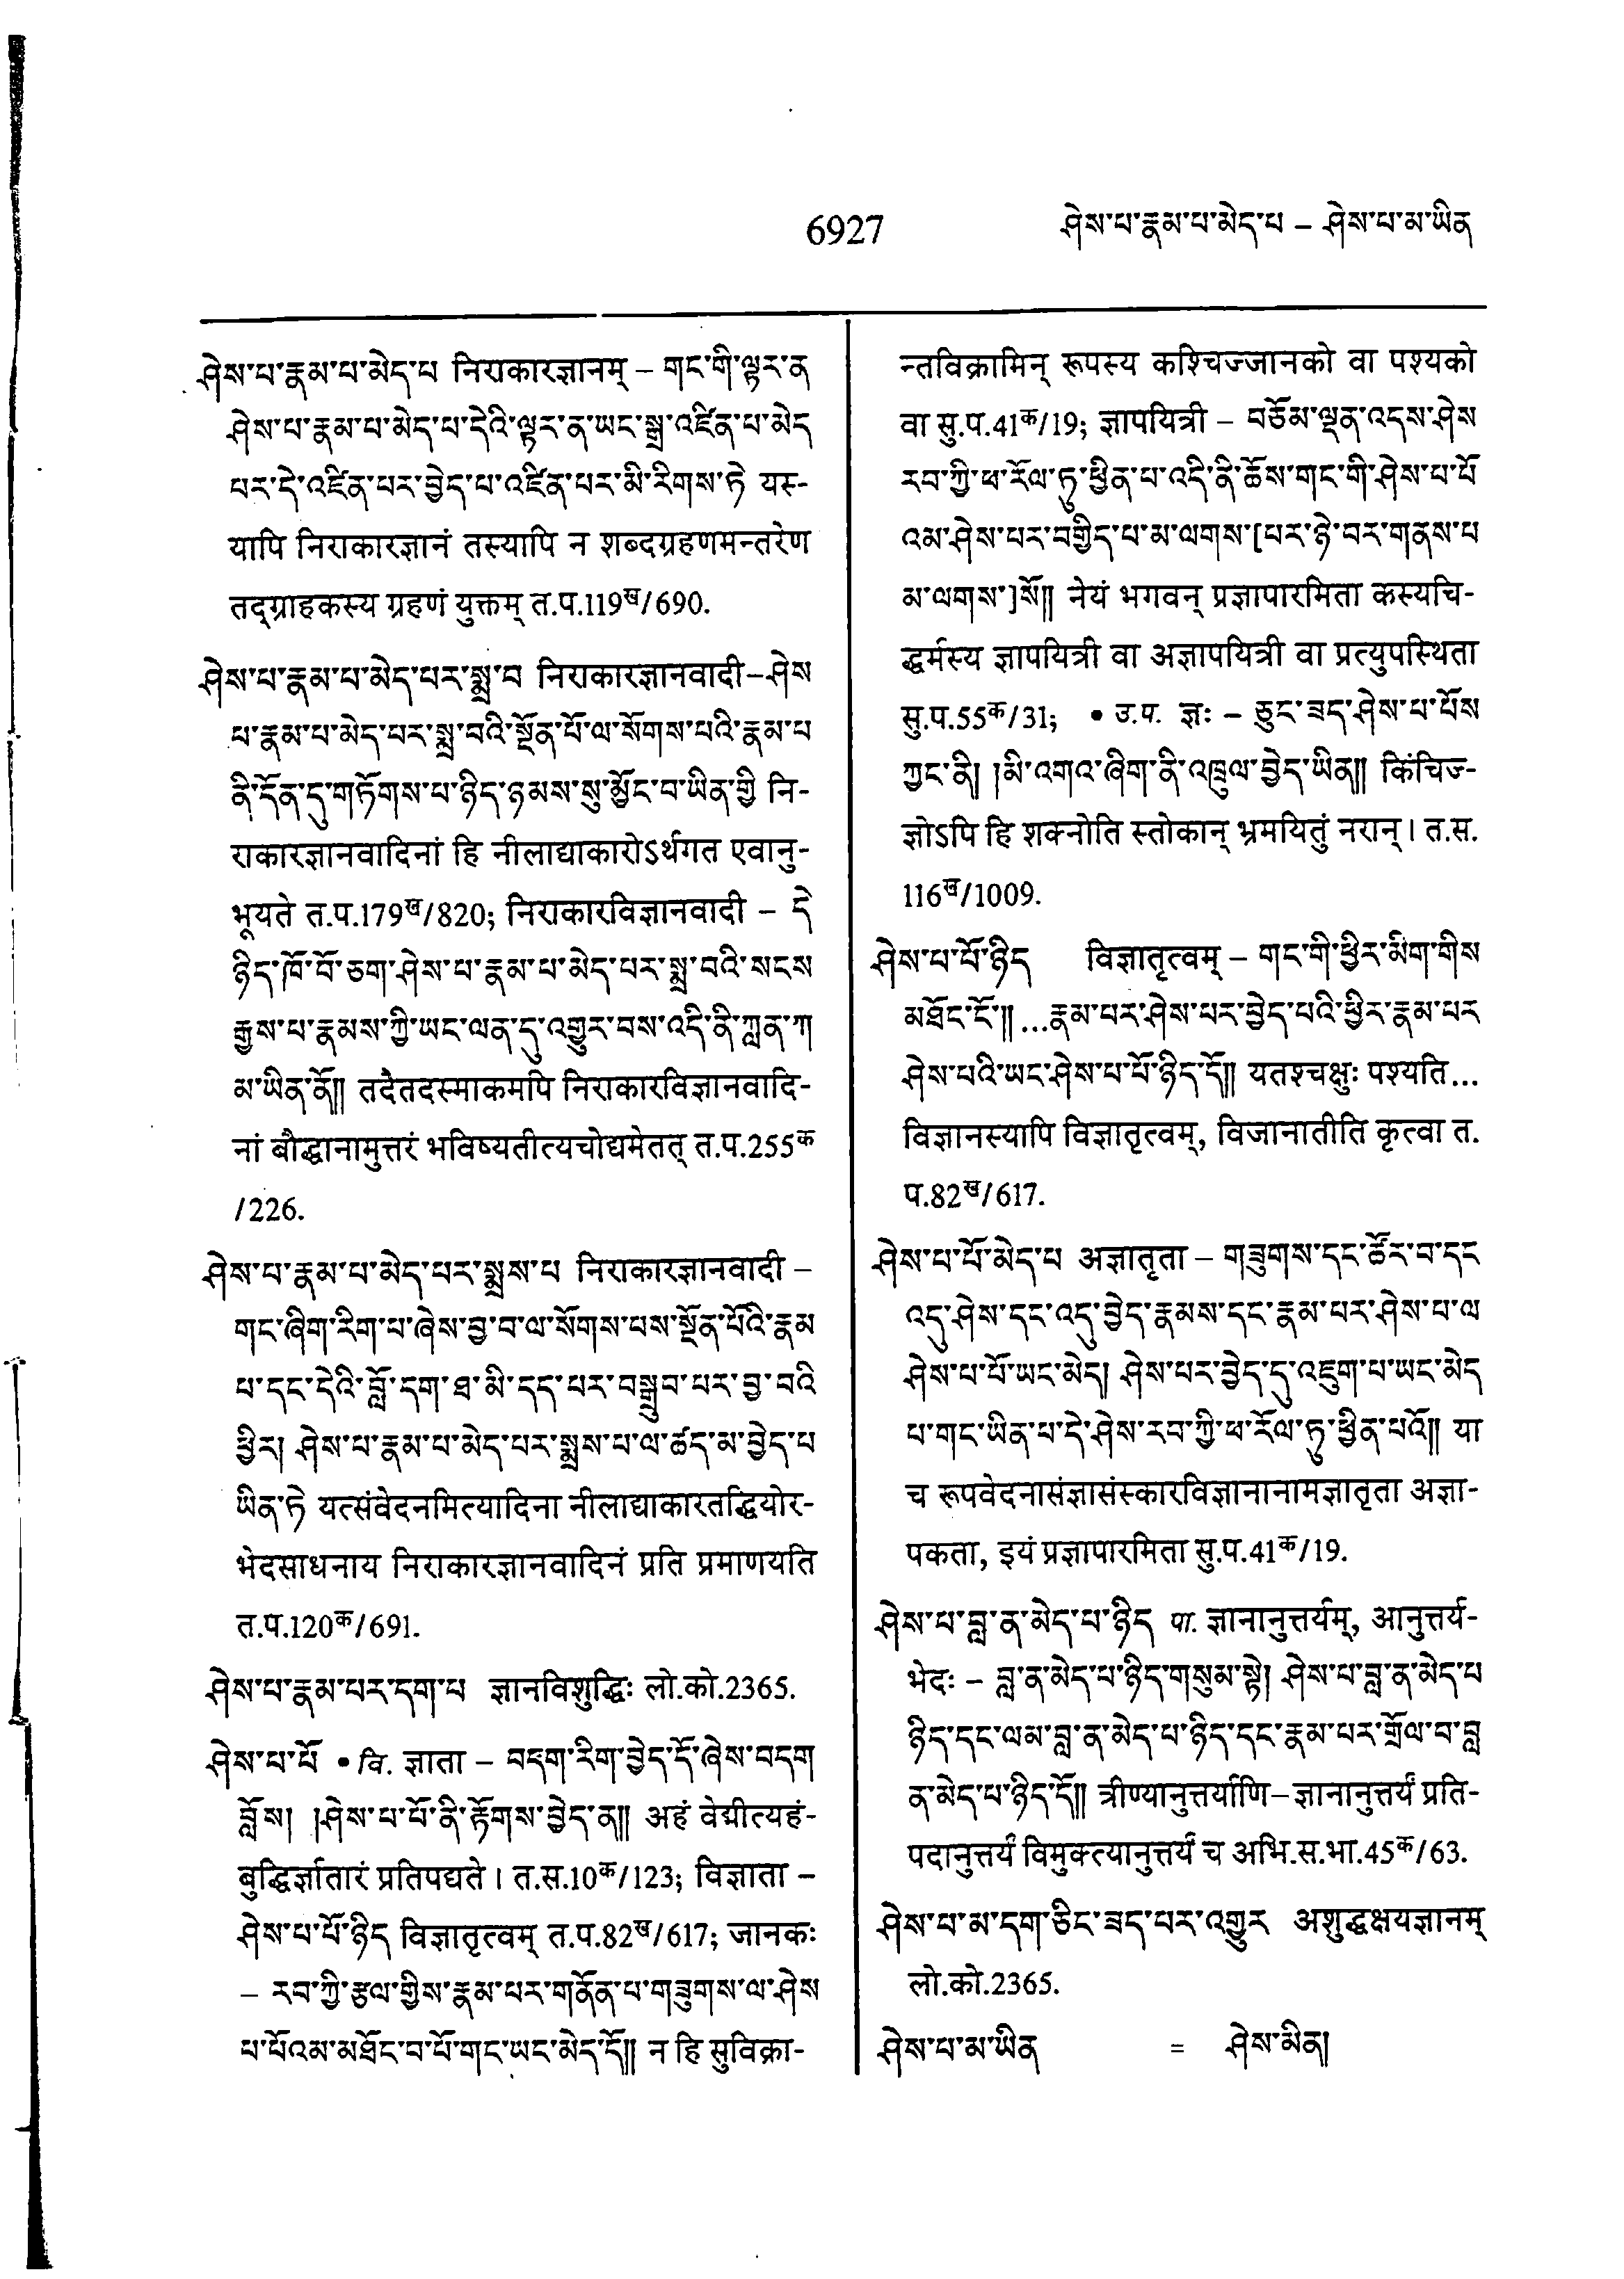 6927
ཤེས་པ་རྣམ་པ་མེད་པ – ཤེས་པ་མ་ཡིན
ཤེས་པ་རྣམ་པ་མེད་པ निराकारज्ञानम् – གང་གི་ལྟར་ན
ཤེས་པ་རྣམ་པ་མེད་པ་དེའི་ལྟར་ན་ཡང་སྒྲ་འཛིན་པ་མེད
པར་དེ་འཛིན་པར་བྱེད་པ་འཛིན་པར་མི་རིགས་ཏེ यस्-
यापि निराकारज्ञानं तस्यापि न शब्दग्रहणमन्तरेण
तद्ग्राहकस्य ग्रहणं युक्तम् त.प.119ख/690.
ཤེས་པ་རྣམ་པ་མེད་པར་སྨྲ་བ निराकारज्ञानवादी–ཤེས
པ་རྣམ་པ་མེད་པར་སྨྲ་བའི་སྔོན་པོ་ལ་སོགས་པའི་རྣམ་པ
ནི་དོན་དུ་གཏོགས་པ་ཉིད་ཉམས་སུ་མྱོང་བ་ཡིན་གྱི नि-
राकारज्ञानवादिनां हि नीलाद्याकारोऽर्थगत एवानु-
भूयते त.प.179ख/820; निराकारविज्ञानवादी – དེ
ཉིད་ཁོ་བོ་ཅག་ཤེས་པ་རྣམ་པ་མེད་པར་སྨྲ་བའི་སངས
རྒྱས་པ་རྣམས་ཀྱི་ཡང་ལན་དུ་འགྱུར་བས་འདི་ནི་ཀླན་ཀ།
མ་ཡིན་ནོ།། तदेतदस्माकमपि निराकारविज्ञानवादि-
नां बौद्धानामुत्तरं भविष्यतीत्यचोद्यमेतत् त.प.255क
/226.
ཤེས་པ་རྣམ་པ་མེད་པར་སྨྲས་པ निराकारज्ञानवादी –
གང་ཞིག་རིག་པ་ཞེས་བྱ་བ་ལ་སོགས་པས་སྔོན་པོའི་རྣམ
པ་དང་དེའི་བློ་དག་ཐ་མི་དད་པར་བསྒྲུབ་པར་བྱ་བའི
ཕྱིར། ཤེས་པ་རྣམ་པ་མེད་པར་སྨྲས་པ་ལ་ཚད་མ་བྱེད་པ
ཡིན་ཏེ यत्संवेदनमित्यादिना नीलाद्याकारतद्धियोर-
भेदसाधनाय निराकारज्ञानवादिनं प्रति प्रमाणयति
त.प.120क/691.
ཤེས་པ་རྣམ་པར་དག་པ ज्ञानविशुद्धिः लो.को.2365.
ཤེས་པ་པོ • वि. ज्ञाता – བདག་རིག་བྱེད་དོ་ཞེས་བདག
བློས། །ཤེས་པ་པོ་ནི་རྟོགས་བྱེད་ན།། अहं वेद्मीत्यहं-
बुद्धिर्ज्ञातारं प्रतिपद्यते । त.स.10क/123; विज्ञाता –
ཤེས་པ་པོ་ཉིད विज्ञातृत्वम् त.प.82ख/617; जानकः
– རབ་ཀྱི་རྩལ་གྱིས་རྣམ་པར་གནོན་པ་གཟུགས་ལ་ཤེས
པ་པོའམ་མཐོང་བ་པོ་གང་ཡང་མེད་དོ།། न हि सुविक्रा-
न्तविक्रामिन् रूपस्य कश्चिज्जानको वा पश्यको
वा सु.प.41क/19; ज्ञापयित्री – བཅོམ་ལྡན་འདས་ཤེས
རབ་ཀྱི་ཕ་རོལ་ཏུ་ཕྱིན་པ་འདི་ནི་ཆོས་གང་གི་ཤེས་པ་པོ
འམ་ཤེས་པར་བགྱིད་པ་མ་ལགས་[པར་ཉེ་བར་གནས་པ
མ་ལགས་]སོ།། नेयं भगवन् प्रज्ञापारमिता कस्यचि-
द्धर्मस्य ज्ञापयित्री वा अज्ञापयित्री वा प्रत्युपस्थिता
सु.प.55क/31; • उ.प. ज्ञः – ཅུང་ཟད་ཤེས་པ་པོས
ཀྱང་ནི། །མི་འགའ་ཞིག་ནི་འཁྲུལ་བྱེད་ཡིན།། किंचिज्-
ज्ञोऽपि हि शक्नोति स्तोकान् भ्रमयितुं नरान् । त.स.
116ख/1009.
ཤེས་པ་པོ་ཉིད विज्ञातृत्वम् – གང་གི་ཕྱིར་མིག་གིས
མཐོང་ངོ་།།...རྣམ་པར་ཤེས་པར་བྱེད་པའི་ཕྱིར་རྣམ་པར
ཤེས་པའི་ཡང་ཤེས་པ་པོ་ཉིད་དོ།། यतश्चक्षुः पश्यति...
विज्ञानस्यापि विज्ञातृत्वम्, विजानातीति कृत्वा त.
प.82ख/617.
ཤེས་པ་པོ་མེད་པ अज्ञातृता – གཟུགས་དང་ཚོར་བ་དང
འདུ་ཤེས་དང་འདུ་བྱེད་རྣམས་དང་རྣམ་པར་ཤེས་པ་ལ
ཤེས་པ་པོ་ཡང་མེད། ཤེས་པར་བྱེད་དུ་འཇུག་པ་ཡང་མེད
པ་གང་ཡིན་པ་དེ་ཤེས་རབ་ཀྱི་ཕ་རོལ་ཏུ་ཕྱིན་པའོ།། या
च रूपवेदनासंज्ञासंस्कारविज्ञानानामज्ञातृता अज्ञा-
पकता, इयं प्रज्ञापारमिता सु.प.41क/19.
ཤེས་པ་བླ་ན་མེད་པ་ཉིད पा. ज्ञानानुत्तर्यम्, आनुत्तर्य-
भेदः – བླ་ན་མེད་པ་ཉིད་གསུམ་སྟེ། ཤེས་པ་བླ་ན་མེད་པ
ཉིད་དང་ལམ་བླ་ན་མེད་པ་ཉིད་དང་རྣམ་པར་གྲོལ་བ་བླ
ན་མེད་པ་ཉིད་དོ།། त्रीण्यानुत्तर्याणि–ज्ञानानुत्तर्यं प्रति-
पदानुत्तर्यं विमुक्त्यानुत्तर्यं च अभि.स.भा.45क/63.
ཤེས་པ་མ་དག་ཅིང་ཟད་པར་འགྱུར अशुद्धक्षयज्ञानम्
लो.को.2365.
ཤེས་པ་མ་ཡིན = ཤེས་མིན།